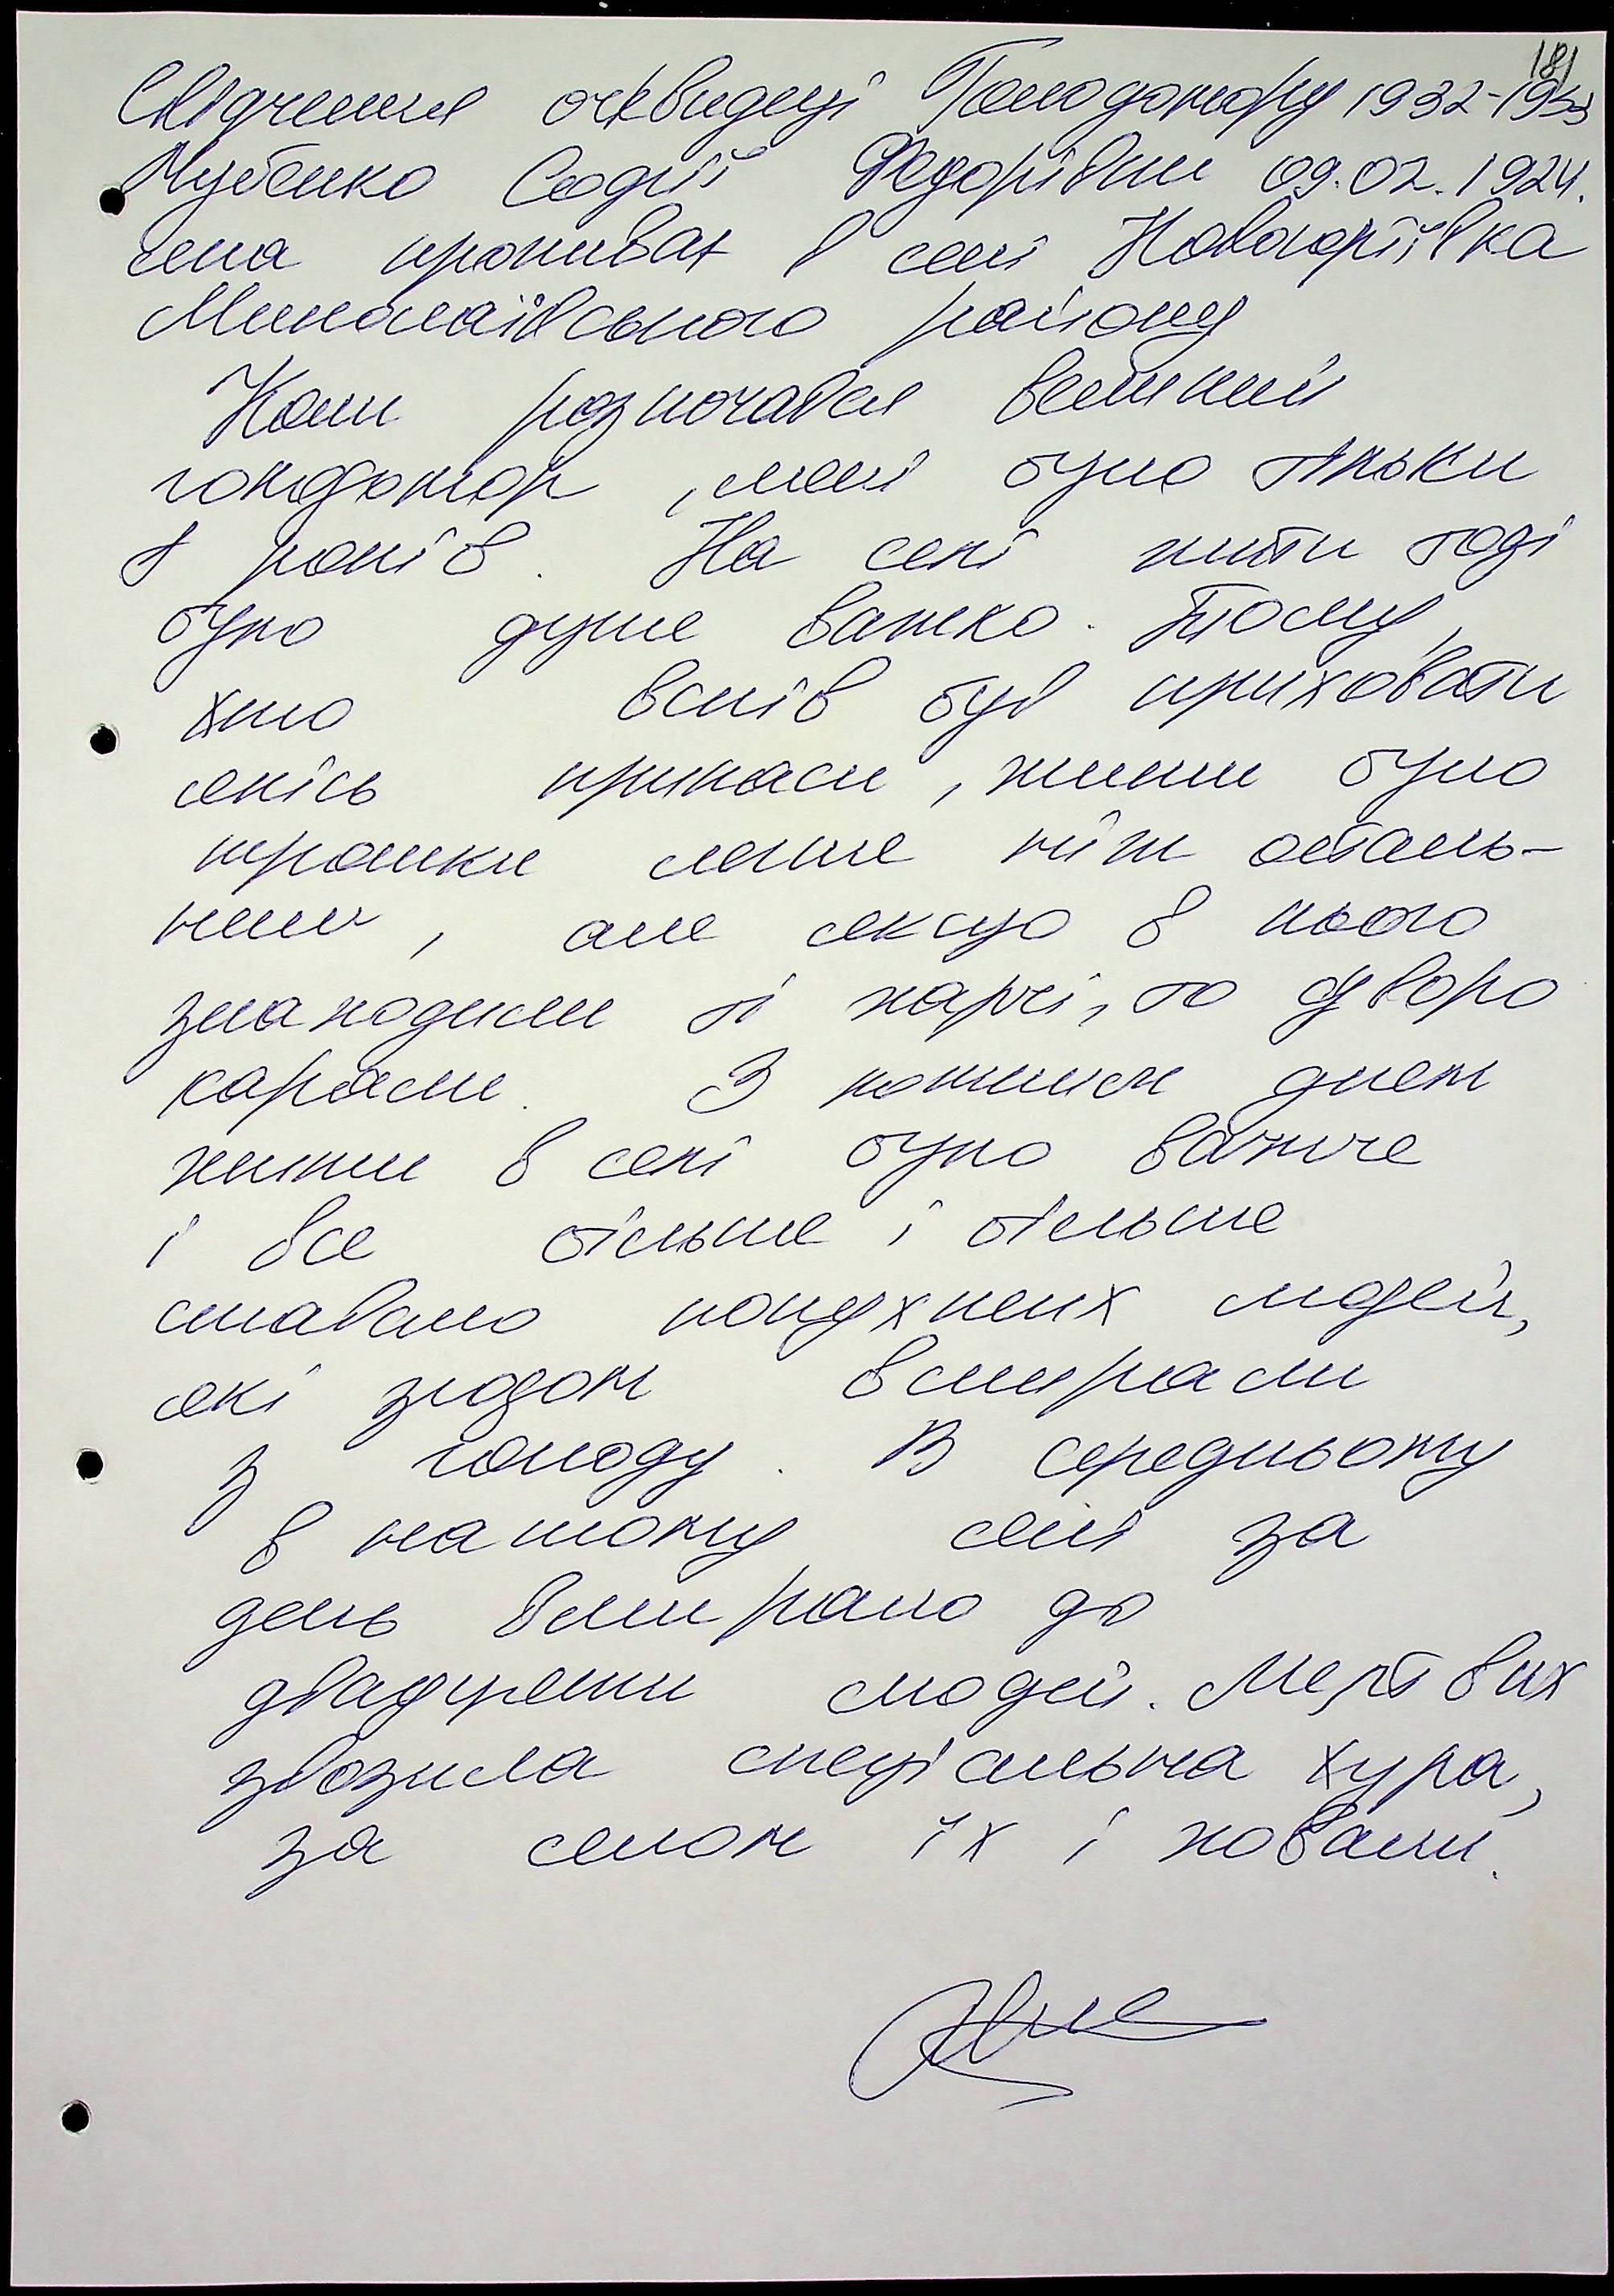 181
Свідчення очевидеці Голодомору 1932-1933
Чубенко Софії Федорівни 09.02.1924.
яка проживає в селі Новогоріївка
Миколаївського району
Коли розпочався великий
голодомор, мені було тільки
8 років. На селі жити тоді
було дуже важко. Тому,
хто вспів був приховати
якісь припаси, жити було
трошки легше ніж осталь-
ним, але якщо в нього
знаходили ті харчі, то суворо
карали. З кожним днем
жити в селі було важче
і все більше і більше
ставало попухших людей,
які згодом вмирали
з голоду. В середньому
в нашому селі за
день вмирало до
двадцяти людей. Мертвих
звозила спеціальна хура,
за селом їх і ховали.